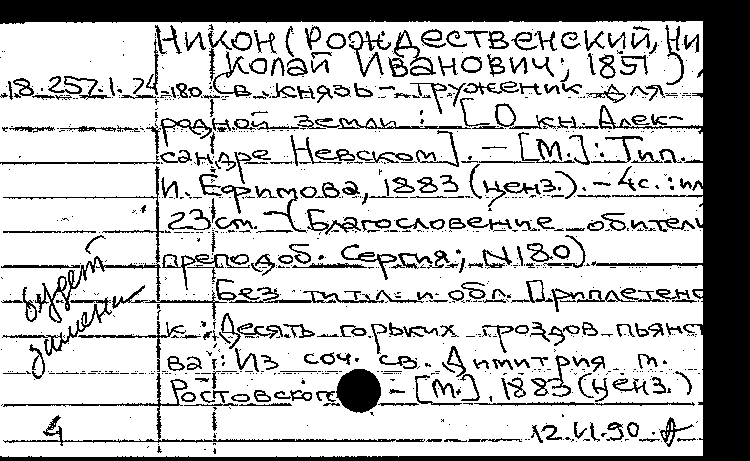 Никон (Рождественский, Ни
колай Иванович; 1851)
18.257.1.24-180 Св. князь-труженик для
родной земли : [О кн. Алек-
сандре Невском]. – [М.] : Тип.
И. Ефимова, 1883 (ценз.). – 4с. : ил
23 см. – (Благословение обители
преподоб. Сергия; N180).
Без тит.л. и обл. Приплетено
к : Десять горьких гроздов пьянст
ва : Из соч. св. Димитрия м.
Ростовского – [М.], 1883 (ценз.)
будет
4
12.VI.90.